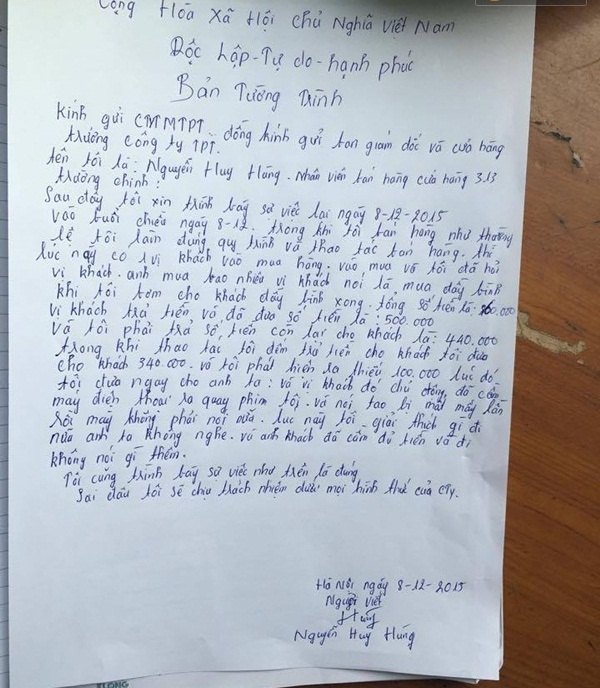 Cộng Hòa Xã Hội Chủ Nghĩa Việt Nam
Độc Lập-Tự do-hạnh phúc
Bản Tường Trình
Kính gửi CTMTPT
trưởng công ty TPT. đồng kính gửi ban giám đốc và cửa hàng
tên tôi là: Nguyễn Huy Hùng. Nhân viên bán hàng cửa hàng 3.13
trường chinh:
Sau đây tôi xin trình bày sự việc tại ngày 8-12-2015
vào buổi chiều ngày 8-12. trong khi tôi bán hàng như thường
lệ tôi làm đúng quy trình và thao tác bán hàng. thì
lúc này có 1 vị khách vào mua hàng. vào mua và tôi đã hỏi
vị khách. anh mua bao nhiêu vị khách nói là mua đầy bình
khi tôi bơm cho khách đầy bình xong. tổng số tiền là: 60.000
vị khách trả tiền và đã đưa số tiền là: 500.000
và tôi phải trả số tiền còn lại cho khách là: 440.000
trong khi thao tác tôi đếm trả tiền cho khách tôi đưa
cho khách 340.000. và tôi phát hiện ra thiếu 100.000 lúc đó
tôi đưa ngay cho anh ta: và vị khách đó chủ động đã cầm
máy điện thoại ra quay phim tôi. và nói tao bị mất mấy lần
rồi mày không phải nói nữa. lúc này tôi giải thích gì đi
nữa anh ta không nghe. và anh khách đã cầm đủ tiền và đi
không nói gì thêm.
Tôi cũng trình bày sự việc như trên là đúng
Sai đâu tôi sẽ chịu trách nhiệm dưới mọi hình thức của cty.
Hà Nội ngày 8-12-2015
Người viết
Hùng
Nguyễn Huy Hùng